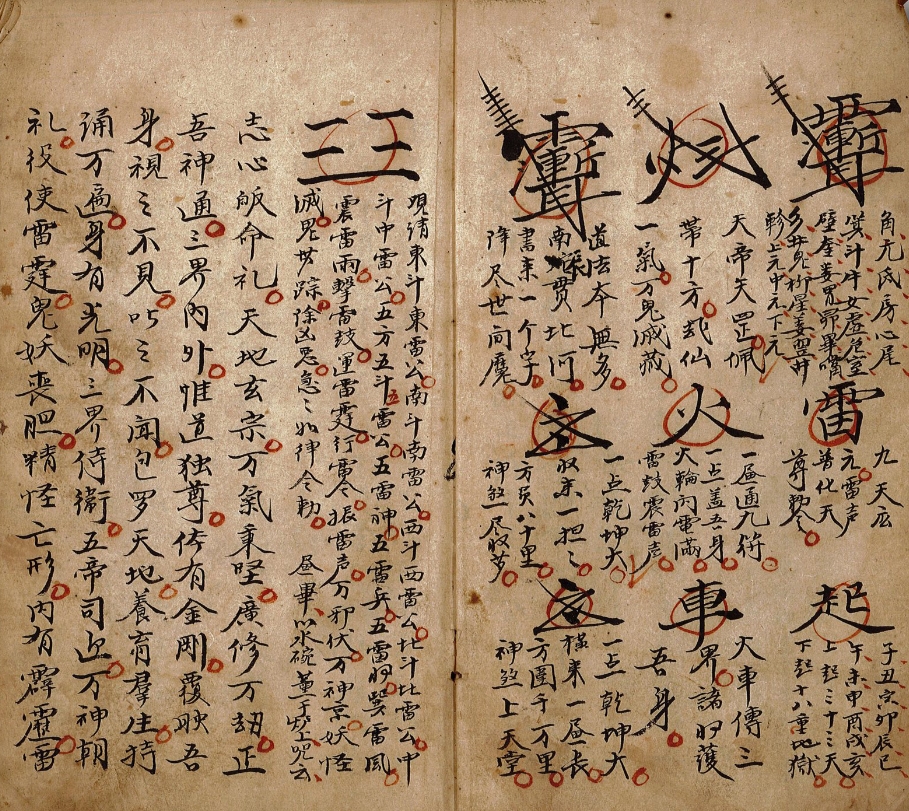 角亢氐房心尾
斗牛女虛危室
壁奎婁胃昴畢觜
参井鬼柳星
軫上元中元下元
天帝矢罡佩
帶十方武仙
一氣万鬼滅藏
道法本無多
南辰贯北河
書来一个字
降尽世间魔
雷
九天应
元雷声
普化天
尊勅令
火
一昼通九符
一点盖吾身
火輪闪電滿
雷鼓震雷声
一点乾坤大
収来一担〻
方员八十里
神煞尽収
起
子丑寅卯辰巳
午未申酉戌亥
上起三十三天
下起十八重地獄
車
火車傳三
界諸将護
吾身
一点乾坤大
橫来一昼長
方圓千万里
神煞上天堂
三三
观请東斗東雷公南斗南雷公西斗西雷公北斗北雷公中
斗中雷公五方五斗五雷公五雷神五雷兵五雷将巽雷風
震雷雨擊雷鼓運雷霆行雷令振雷声万邪伏万神哀妖怪
滅鬼世踪除凶恶急〻如律令勅 昼畢以水碗盖于上咒云
志心皈命礼天地玄宗万氣秉坚廣修万劫正
吾神通三界内外惟道独尊体有金剛覆映吾
身視之不見听之不闻包罗天地養育羣生持
诵万遍身有光明三界侍衛五帝司迎万神朝
礼役使雷霆鬼妖丧胆精怪亡形内有霹靂雷